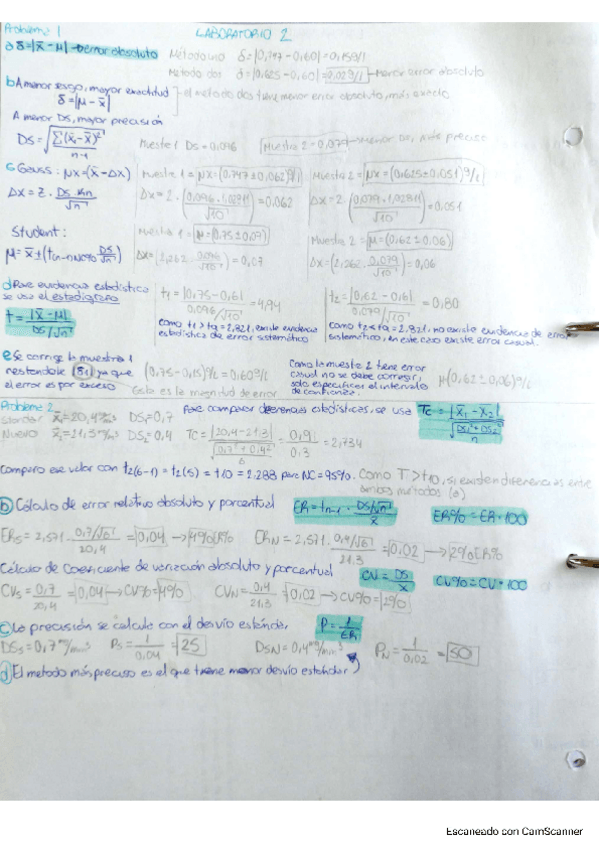 Problema 1 LABORATORIO 2
a) δ=|x̄-μ| → error absoluto Método uno δ=|0,747-0,60|=0,15g/l
Método dos δ=|0,625-0,60|=0,02g/l → Menor error absoluto
b) A menor sesgo, mayor exactitud
δ=|μ-x̄| el metodo dos tiene menor error absoluto, más exacto
A menor DS, mayor precisión
DS=√Σ(x̄i-x̄)²/n-1 Muestra 1 DS=0,096 Muestra 2=0,079 → Menor DS, más preciso
c) Gauss: μx=(x̄-Δx) Muestra 1=μx=(0.747±0,062)g/l Muestra 2=μx=(0.625±0.051)g/l
Δx=z·DS·Kn/√n Δx=2·(0,096·1,0281)/√10=0,062 Δx=2·(0,079·1.0281)/√10=0.051
Student: Muestra 1=μ=(0.75±0,07) Muestra 2=μ=(0,62±0.06)
μ=x̄±(tn-1 NC% DS/√n) Δx=(2,262·0.096/√10)=0,07 Δx=(2,262·0.079/√10)=0,06
d) Para evidencia estadística
se usa el estadígrafo t1=|0,75-0,6|/0.096/√10=4,94 t2=|0,62-0,6|/0.079/√10=0,80
t=|x̄-μ|/DS/√n como t1>tα=2,821, existe evidencia estadística de error sistemático como t2<tα=2,821, no existe evidencias de error sistemático, en este caso existe error casual.
e) Se corrige la muestra 1
restandole (δ1) ya que (0,75-0,15)g/l=0,60g/l Como la muestra 2 tiene error
el error es por exceso Esta es la magnitud de error casual no se debe corregir, solo especificar el intervalos de confianza. μ(0,62±0,06)g/l
Problema 2 Para comparar diferencias estadísticas, se usa Tc=|x̄1-x̄2|/√DS1²+DS2²/n
Standar x̄1=20,4 DS1=0,7
Nuevo x̄2=21,3 DS2=0,4 Tc=|20,4-21.3|/√0,7²+0,4²/6=0,9/0.3=2,734
comparo ese valor con t2(6-1)=t2(5)=t10=2.288 para NC=95%. Como T>t10, si existen diferencias entre ambos métodos (a)
b) Cálculo de error relativo absoluto y porcentual ER=tn-1·DS/√n/x̄ ER%=ER·100
ERS=2,571·0,7/√6/20,4=0,04→4%ER% ERN=2,571·0,4/√6/21.3=0,02→2%ER%
Cálculo de Coeficiente de variación absoluto y porcentual CV=DS/x̄ CV%=CV·100
CVS=0,7/20,4=0,04→CV%=4% CVN=0,4/21.3=0,02→CV%=2%
c) La precisión se calcula con el desvío estándar, P=1/ERi
DSS=0,7 Ps=1/0.04=25 DSN=0,4 PN=1/0,02=50
d) El metodo más preciso es el que tiene menor desvío estándar
Escaneado con CamScanner